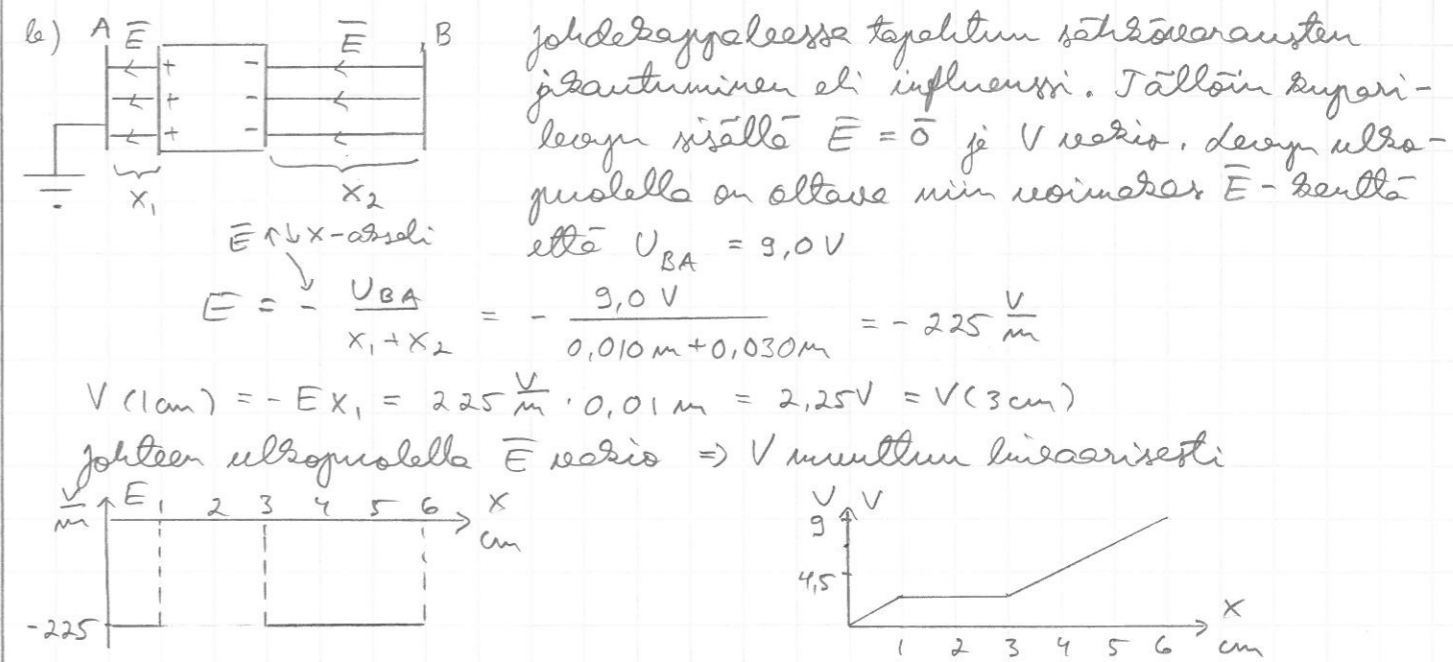 b) A E̅ E̅ B johdekappaleessa tapahtuu sähkövarausten
jakautuminen eli influenssi. Tällöin kupari-
levyn sisällä E̅ = 0̅ ja V vakio. Levyn ulko-
puolella on oltava niin voimakas E̅-kenttä
että U_BA = 9,0 V
+ -
+ -
+ -
x₁ x₂
E̅ ↑↓ x-akseli
E = - U_BA / (x₁ + x₂) = - 9,0 V / (0,010 m + 0,030 m) = - 225 V/m
V (1 cm) = - E x₁ = 225 V/m · 0,01 m = 2,25 V = V (3 cm)
johteen ulkopuolella E̅ vakio => V muuttuu lineaarisesti
V/m E 1 2 3 4 5 6 x cm
-225
V V
9
4,5
1 2 3 4 5 6 x cm